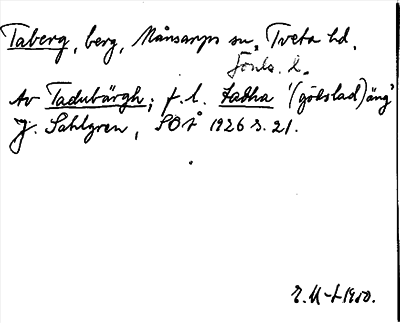 Taberg, berg, Månsarps sn, Tveta hd.
Jönk. l.
Av Tadubärgh; f. l. tadha '(gödslad) äng'
J. Sahlgren, SOÅ 1926 s. 21.
1950.